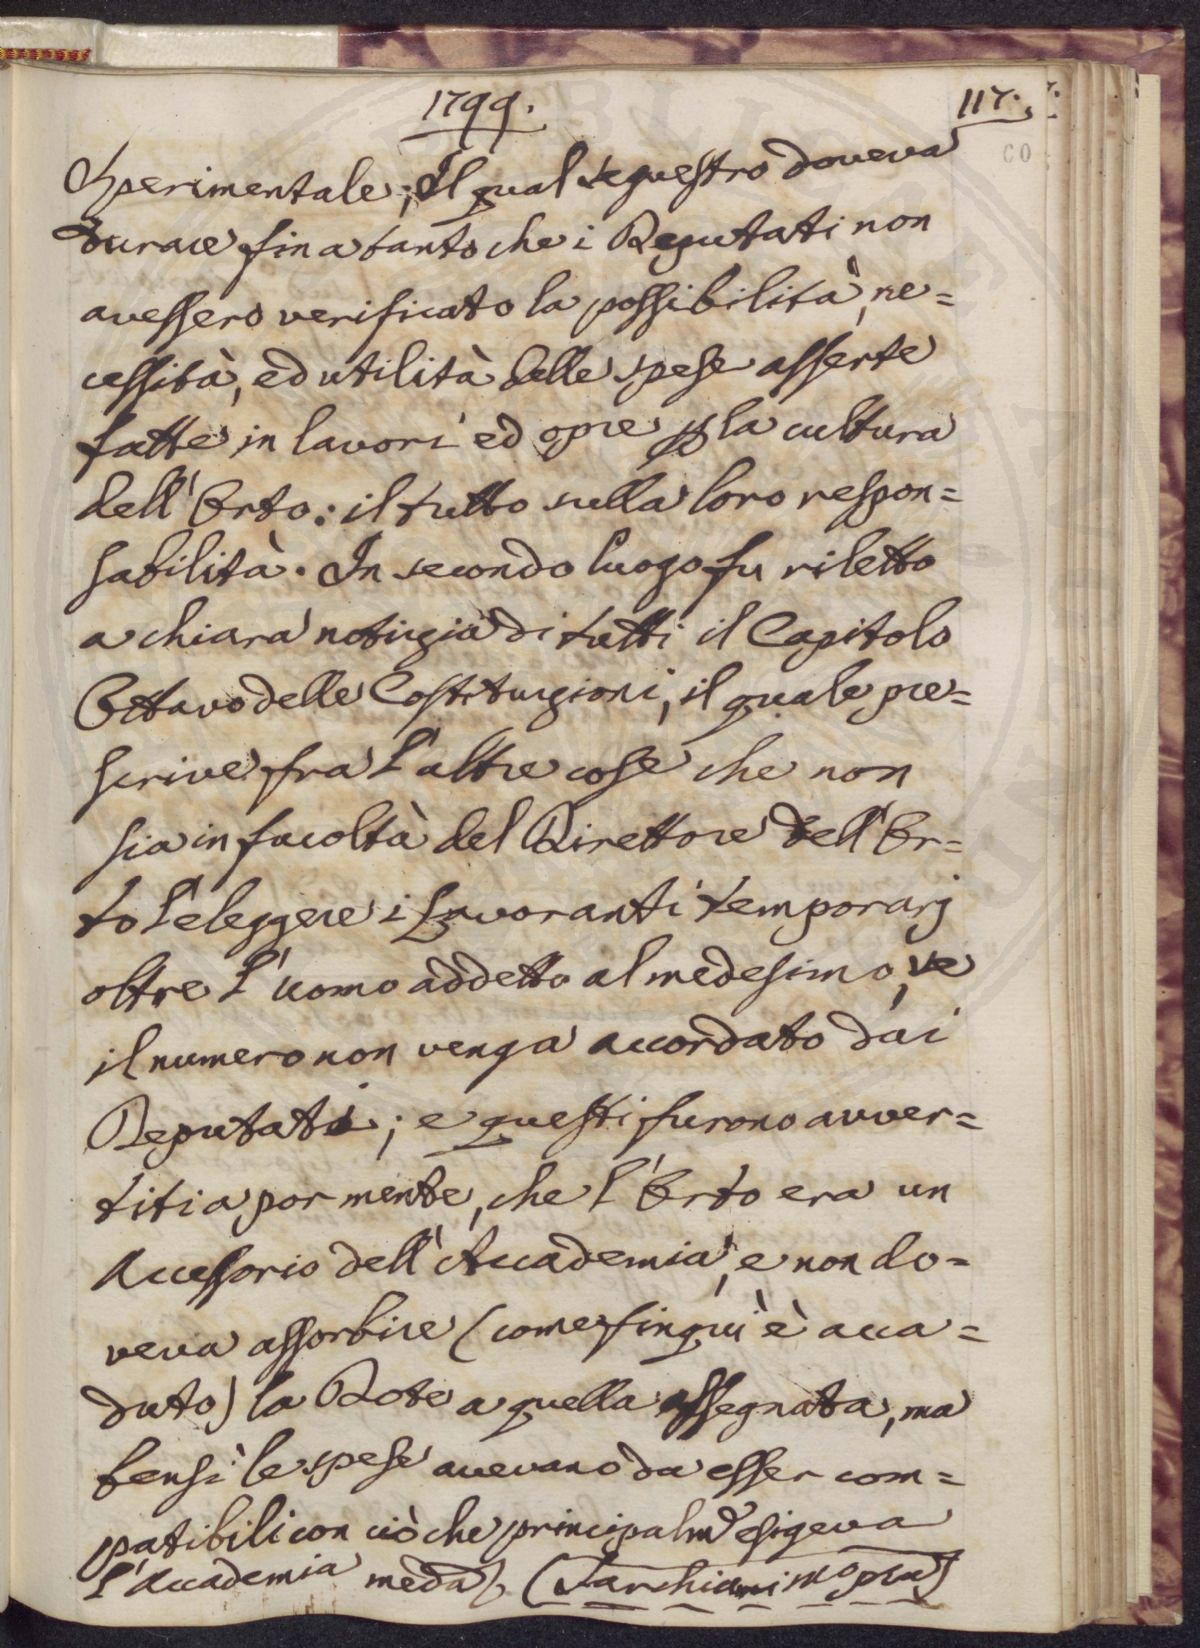 1799. 117.
CO
Sperimentale; Il qual sequestro doveva
durare fin a tanto che i Deputati non
avessero verificato la possibilità, ne=
cessità, ed utilità delle spese asserte
fatte in lavori ed opre p la cultura
dell'Orto: il tutto sulla loro respon=
sabilità. In secondo luogo fu riletto
a chiara notizia di tutti il Capitolo
Ottavo delle Costituzioni, il quale pre=
scrive fra l'altre cose che non
sia in facoltà del Direttore dell'Or=
to l'eleggere i Lavoranti temporarj
oltre l'uomo addetto al medesimo, se
il numero non venga accordato dai
Deputati; e questi furono avver=
titi a por mente, che l'Orto era un
Accessorio dell'Accademia, e non do=
veva assorbire (come fin quì è acca=
duto) la Dote a quella assegnata, ma
bensì le spese avevano da esser com=
patibili con ciò che principalmᵉ esigeva
l'Accademia medᵃ. (Tarchiani